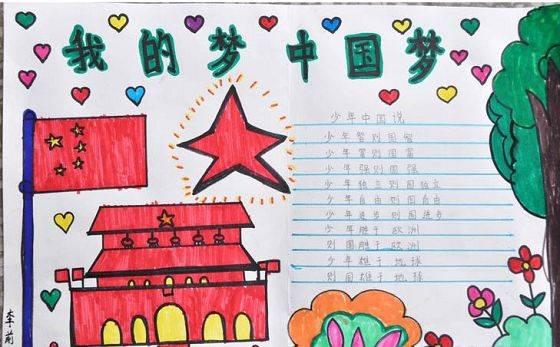 我的梦 中国梦
少年中国说
少年智则国智
少年富则国富
少年强则国强
少年独立则国独立
少年自由则国自由
少年进步则国进步
少年胜于欧洲
则国胜于欧洲
少年雄于地球
则国雄于地球